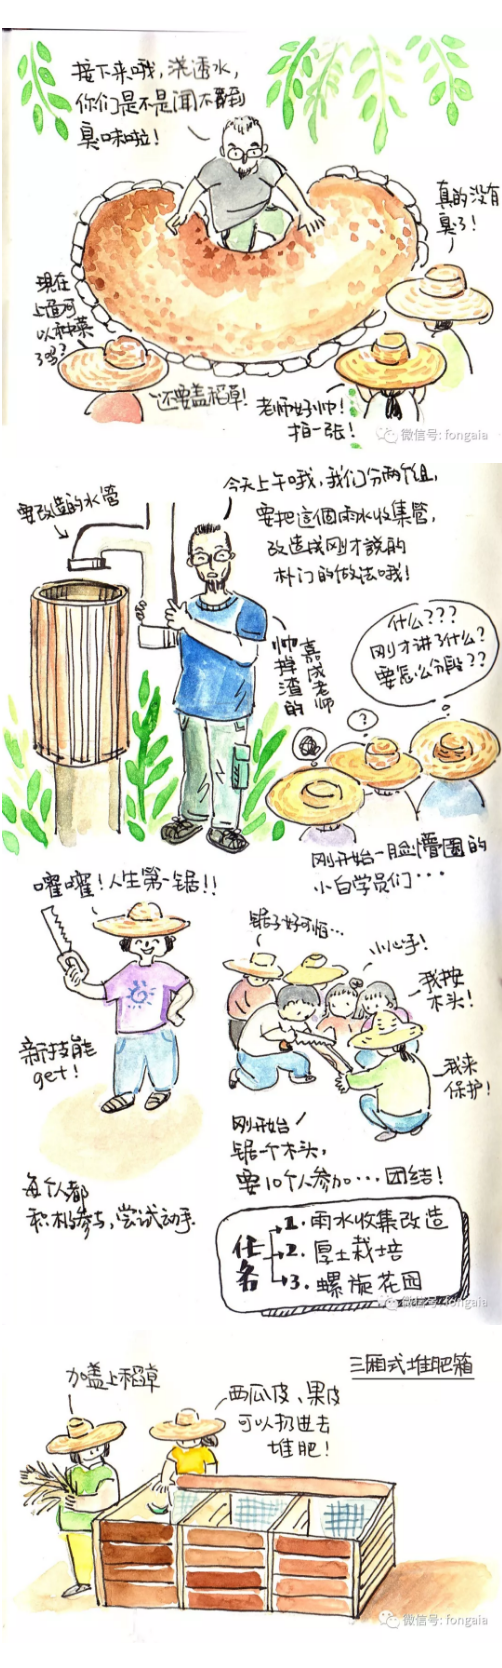 接下来哦，浇透水，
你们是不是闻不到
臭味啦！
真的没有
臭了！
現在
上面可
以种菜
了吗？
还要盖稻草！
老师好帅！
拍一张！
微信号: fongaia
要改造的水管
今天上午哦，我们分两个组，
要把這個雨水收集管，
改造成刚才說的
朴门的做法哦！
嘉成老师
帅掉渣的
什么？？？
刚才讲了什么？
要怎么分段？？
?
刚开始一脸懵圈的
小白学员们···
嚯嚯！人生第一锯！！
新技能
get！
每个人都
积极参与，尝试动手
锯子好可怕...
小心手！
我按
木头！
我来
保护！
刚开始
锯一个木头，
要10个人参加···团结！
任务
1. 雨水收集改造
2. 厚土栽培
3. 螺旋花园
微信号: fongaia
三厢式堆肥箱
加盖上稻草
西瓜皮、果皮
可以扔进去
堆肥！
微信号: fongaia